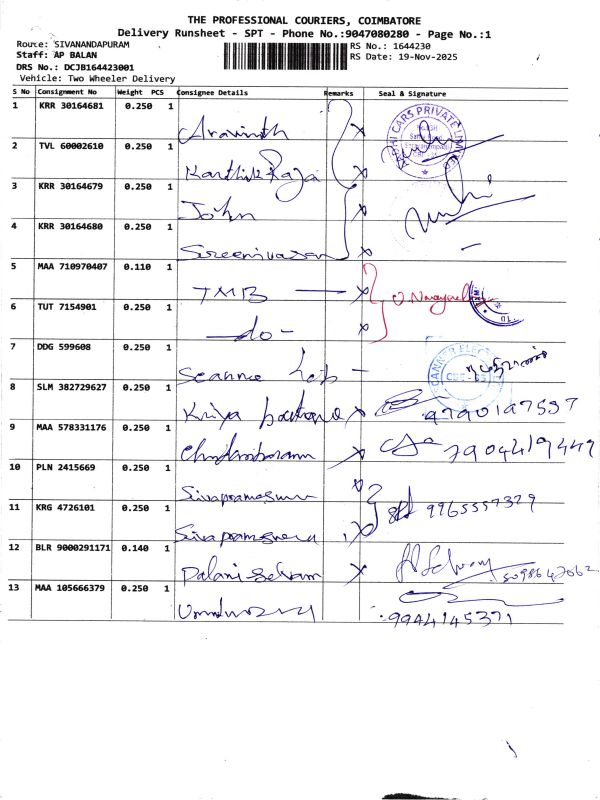 THE PROFESSIONAL COURIERS, COIMBATORE
Delivery Runsheet - SPT - Phone No.:9047080280 - Page No.:1
Route: SIVANANDAPURAM
RS No.: 1644230
Staff: AP BALAN
RS Date: 19-Nov-2025
DRS No.: DCJB164423001
Vehicle: Two Wheeler Delivery
S No Consignment No Weight PCS Consignee Details Remarks Seal & Signature
1 KRR 30164681 0.250 1 Aravinth
2 TVL 60002610 0.250 1 Karthik Raja
3 KRR 30164679 0.250 1 John
4 KRR 30164680 0.250 1 Sreenivasan
5 MAA 710970407 0.110 1 TMB
6 TUT 7154901 0.250 1 -do-
7 DDG 599608 0.250 1 Scanner
8 SLM 382729627 0.250 1 Kriya 9790197597
9 MAA 578331176 0.250 1 7904419449
10 PLN 2415669 0.250 1
11 KRG 4726101 0.250 1 9965557329
12 BLR 9000291171 0.140 1 Palani Selvam
13 MAA 105666379 0.250 1 9944145371